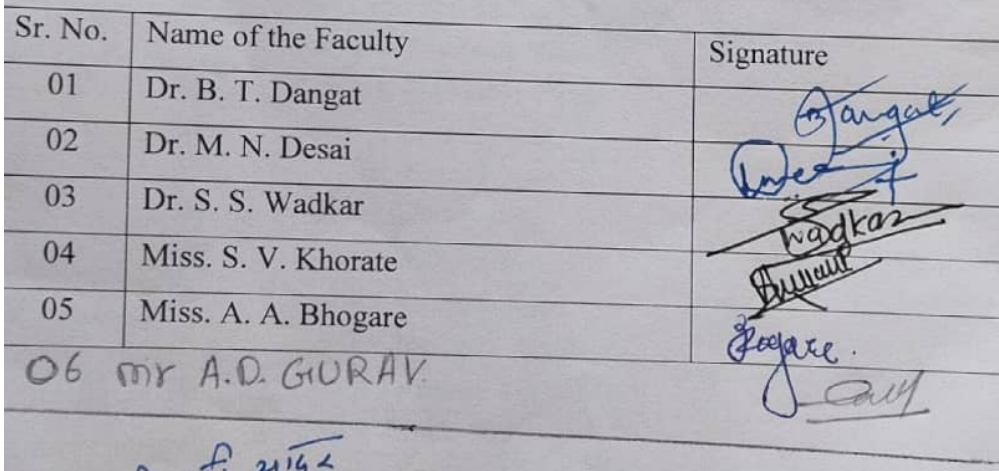 Sr. No. Name of the Faculty Signature
01 Dr. B. T. Dangat Dangat
02 Dr. M. N. Desai
03 Dr. S. S. Wadkar Wadkar
04 Miss. S. V. Khorate
05 Miss. A. A. Bhogare Bhogare.
06 mr A.D. GURAV.